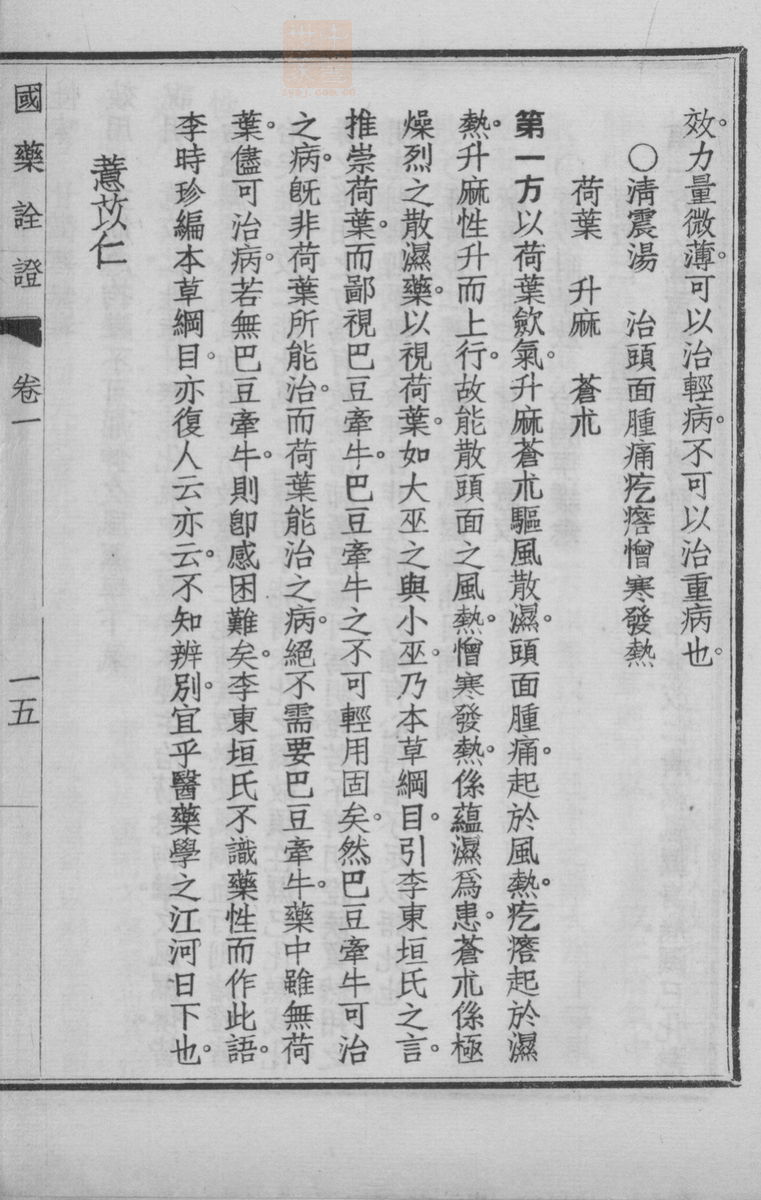 效。力量微薄。可以治輕病。不可以治重病也。
〇淸震湯　治頭面腫痛疙瘩憎寒發熱
荷葉　升麻　蒼朮
第一方以荷葉歛氣。升麻蒼朮驅風散濕。頭面腫痛。起於風熱。疙瘩起於濕
熱。升麻性升而上行。故能散頭面之風熱。憎寒發熱。係蘊濕爲患。蒼朮係極
燥烈之散濕藥。以視荷葉。如大巫之與小巫。乃本草綱目。引李東垣氏之言。
推崇荷葉。而鄙視巴豆牽牛。巴豆牽牛之不可輕用固矣。然巴豆牽牛可治
之病。旣非荷葉所能治。而荷葉能治之病。絕不需要巴豆牽牛。藥中雖無荷
葉。儘可治病。若無巴豆牽牛。則卽感困難矣。李東垣氏不識藥性而作此語。
李時珍編本草綱目。亦復人云亦云。不知辨別。宜乎醫藥學之江河日下也。
薏苡仁
國藥詮證　卷一　一五